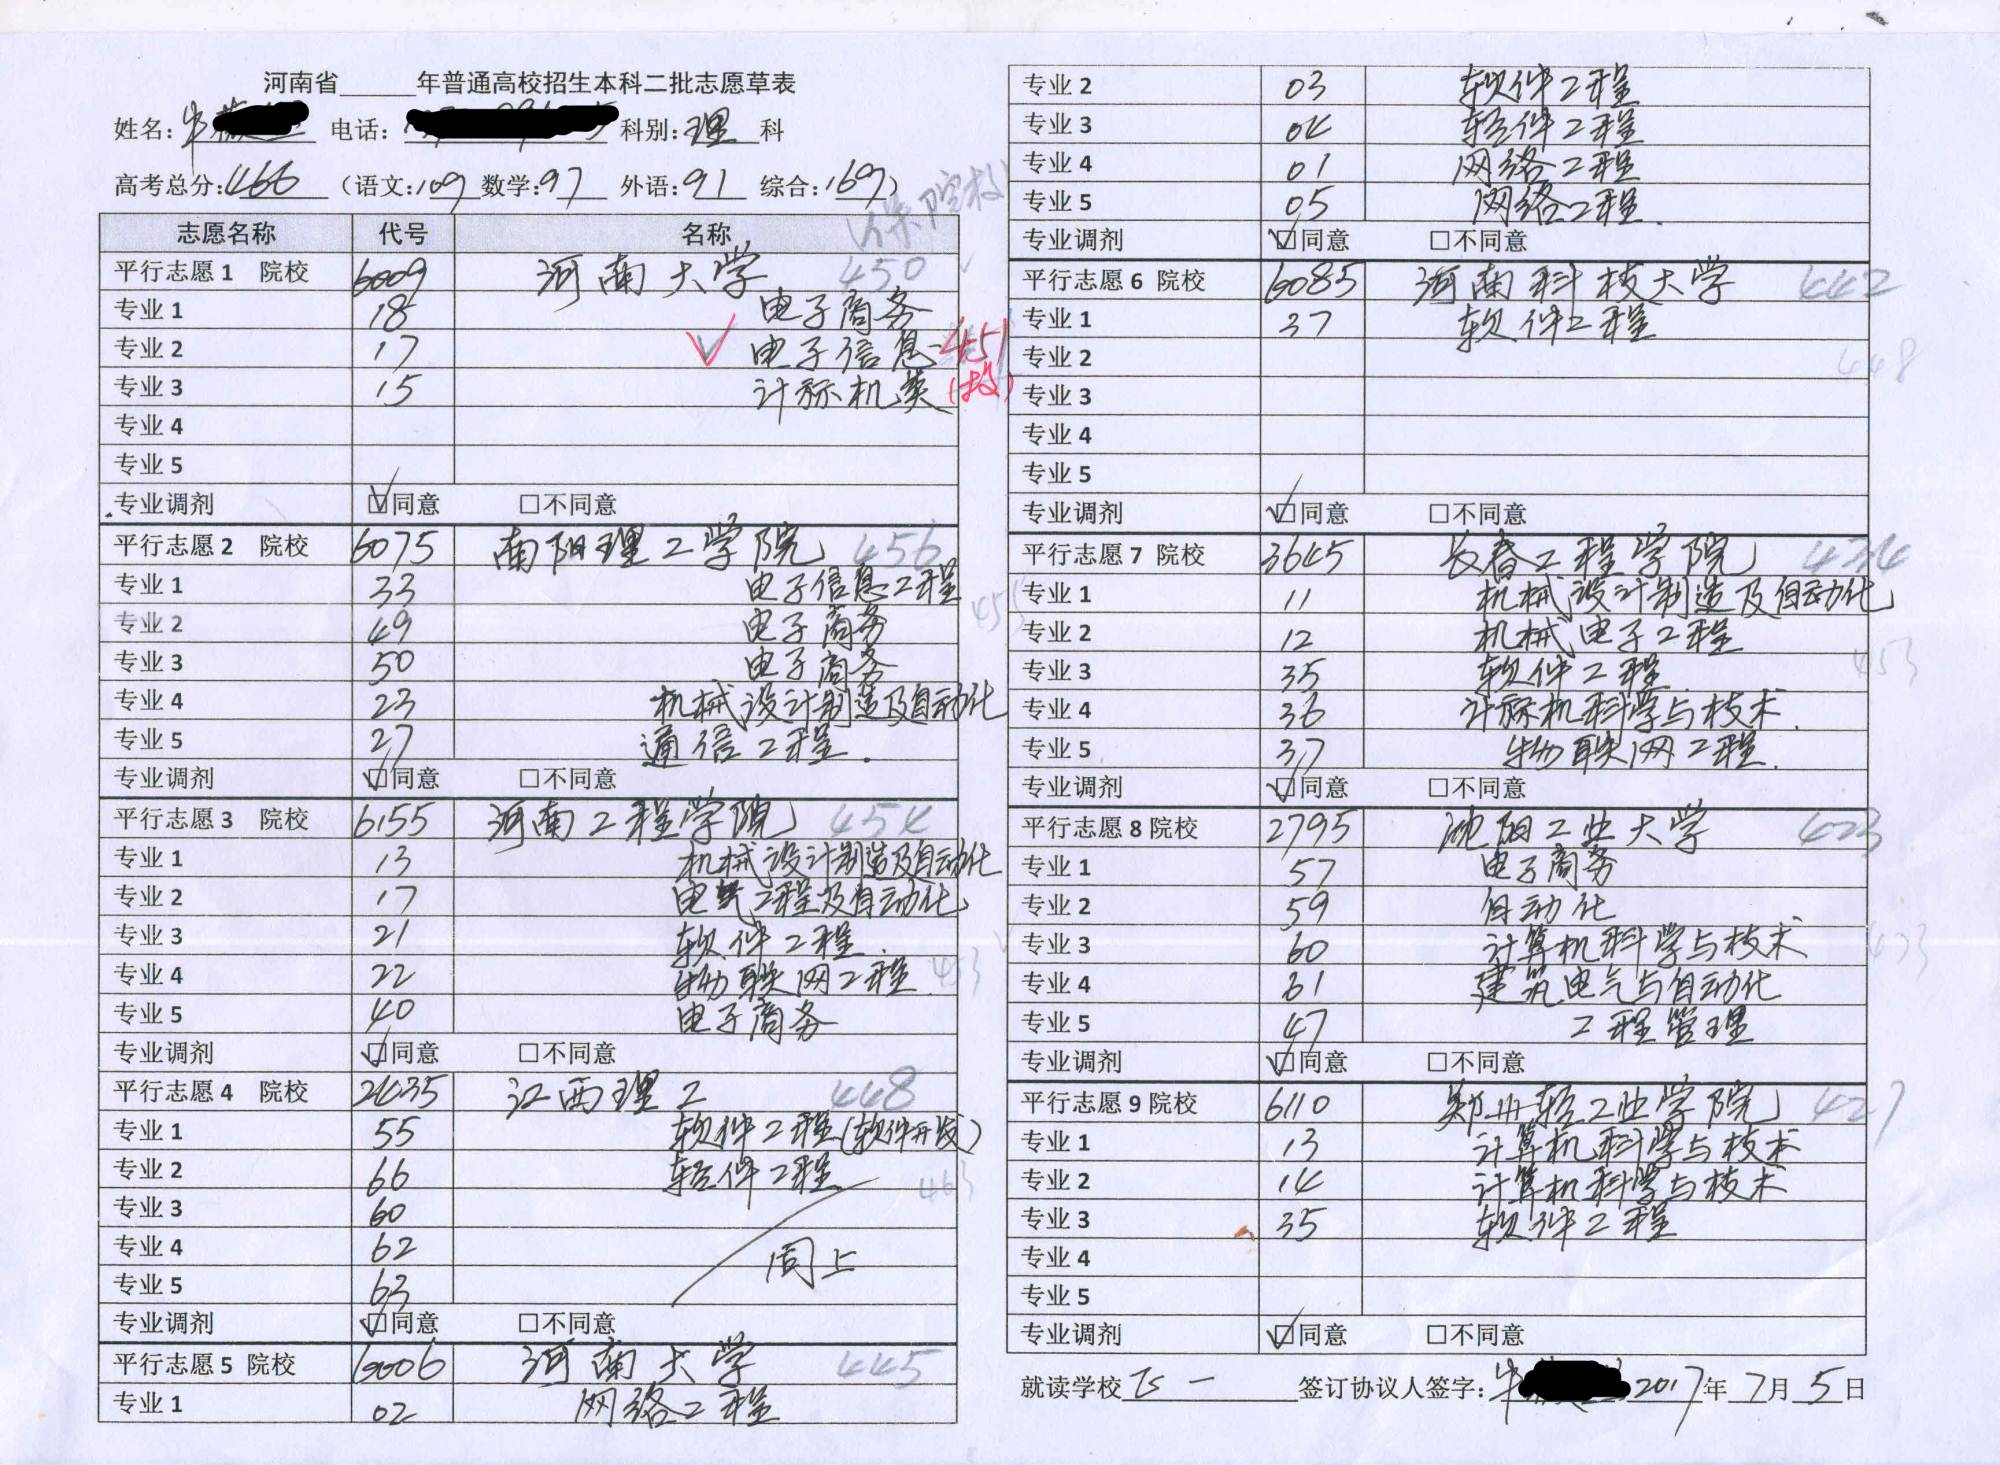 河南省______年普通高校招生本科二批志愿草表
姓名:牛 电话: 科别:理 科
高考总分:466 (语文:109 数学:97 外语:91 综合:169)
(保院校)
志愿名称 代号 名称
平行志愿1 院校 6009 河南大学 450
专业1 18 电子商务
专业2 17 电子信息 451
专业3 15 计称机类 (投)
专业4
专业5
专业调剂 ☑同意 □不同意
平行志愿2 院校 6075 南阳理工学院 456
专业1 33 电子信息工程
专业2 49 电子商务 455
专业3 50 电子商务
专业4 23 机械设计制造及自动化
专业5 27 通信工程.
专业调剂 ☑同意 □不同意
平行志愿3 院校 6155 河南工程学院 454
专业1 13 机械设计制造及自动化
专业2 17 电气工程及自动化
专业3 21 软件工程.
专业4 22 物联网工程 453
专业5 40 电子商务
专业调剂 ☑同意 □不同意
平行志愿4 院校 2435 江西理工 448
专业1 55 软件工程(软件开发)
专业2 66 软件工程 463
专业3 60
专业4 62 同上
专业5 63
专业调剂 ☑同意 □不同意
平行志愿5 院校 6006 河南大学 445
专业1 02 网络工程
专业2 03 软件工程
专业3 04 软件工程
专业4 01 网络工程
专业5 05 网络工程.
专业调剂 ☑同意 □不同意
平行志愿6 院校 6085 河南科技大学 442
专业1 37 软件工程
专业2 448
专业3
专业4
专业5
专业调剂 ☑同意 □不同意
平行志愿7 院校 3645 长春工程学院 434
专业1 11 机械设计制造及自动化
专业2 12 机械电子工程
专业3 35 软件工程 453
专业4 36 计称机科学与技术.
专业5 37 物联网工程.
专业调剂 ☑同意 □不同意
平行志愿8院校 2795 沈阳工业大学 423
专业1 57 电子商务
专业2 59 自动化
专业3 60 计算机科学与技术 433
专业4 61 建筑电气与自动化
专业5 47 工程管理
专业调剂 ☑同意 □不同意
平行志愿9院校 6110 郑州轻工业学院 427
专业1 13 计算机科学与技术
专业2 14 计算机科学与技术
专业3 35 软件工程
专业4
专业5
专业调剂 ☑同意 □不同意
就读学校 签订协议人签字:牛 2017年7月5日